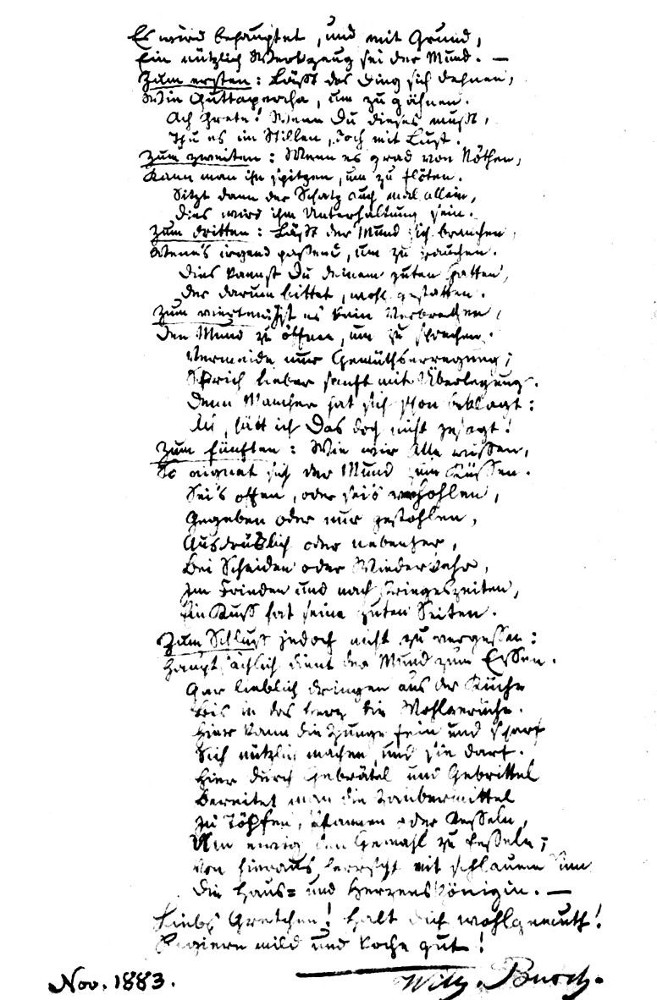 Es wird behauptet, und mit Grund,
Ein nützlich Werkzeug sei der Mund. —
Zum ersten: Läßt das Ding sich dehnen,
Wie Guttapercha, um zu gähnen.
Ach Grete! Wenn Du dieses mußt,
Thu es im Stillen, doch mit Lust.
Zum zweiten: Wenn es grad von Nöthen,
Kann man ihn spitzen, um zu flöten.
Sitzt dann der Schatz auch mal allein,
Dies wird ihm Unterhaltung sein.
Zum dritten: Läßt der Mund sich brauchen,
Wenn's irgend passend, um zu rauchen.
Dies kannst Du deinem guten Gatten,
Der darum bittet, wohl gestatten.
Zum vierten: Ist es kein Verbrechen,
Den Mund zu öffnen, um zu sprechen.
Vermeide nur Gemüthserregung;
Sprich lieber sanft mit Überlegung.
Denn Mancher hat sich schon beklagt:
Ach, hätt ich Das doch nicht gesagt!
Zum fünften: Wie wir Alle wissen,
So eignet sich der Mund zum Küssen.
Sei's offen, oder sei's verhohlen,
Gegeben oder nur gestohlen,
Ausdrücklich oder nebenher,
Bei Scheiden oder Wiederkehr,
Im Frieden und nach Kriegeszeiten,
Ein Kuß hat seine guten Seiten.
Zum Schluß jedoch nicht zu vergessen:
Hauptsächlich dient der Mund zum Essen.
Gar lieblich dringen aus der Küche
Bis in das Herz die Wohlgerüche.
Hier kann die Zunge fein und scharf
Sich nützlich machen, und sie darf.
Hier durch Gebrätel und Gebrittel
Bereitet man die Zaubermittel
Zu Töpfen, Pfannen oder Kesseln,
Um ewig den Gemahl zu fesseln;
Von hieraus herrscht mit schlauem Sinn
Die Haus= und Herzenskönigin. —
Liebs Gretchen! Halt Dich wohlgemuth!
Regiere mild und koche gut!
Nov. 1883. Wilh. Busch.